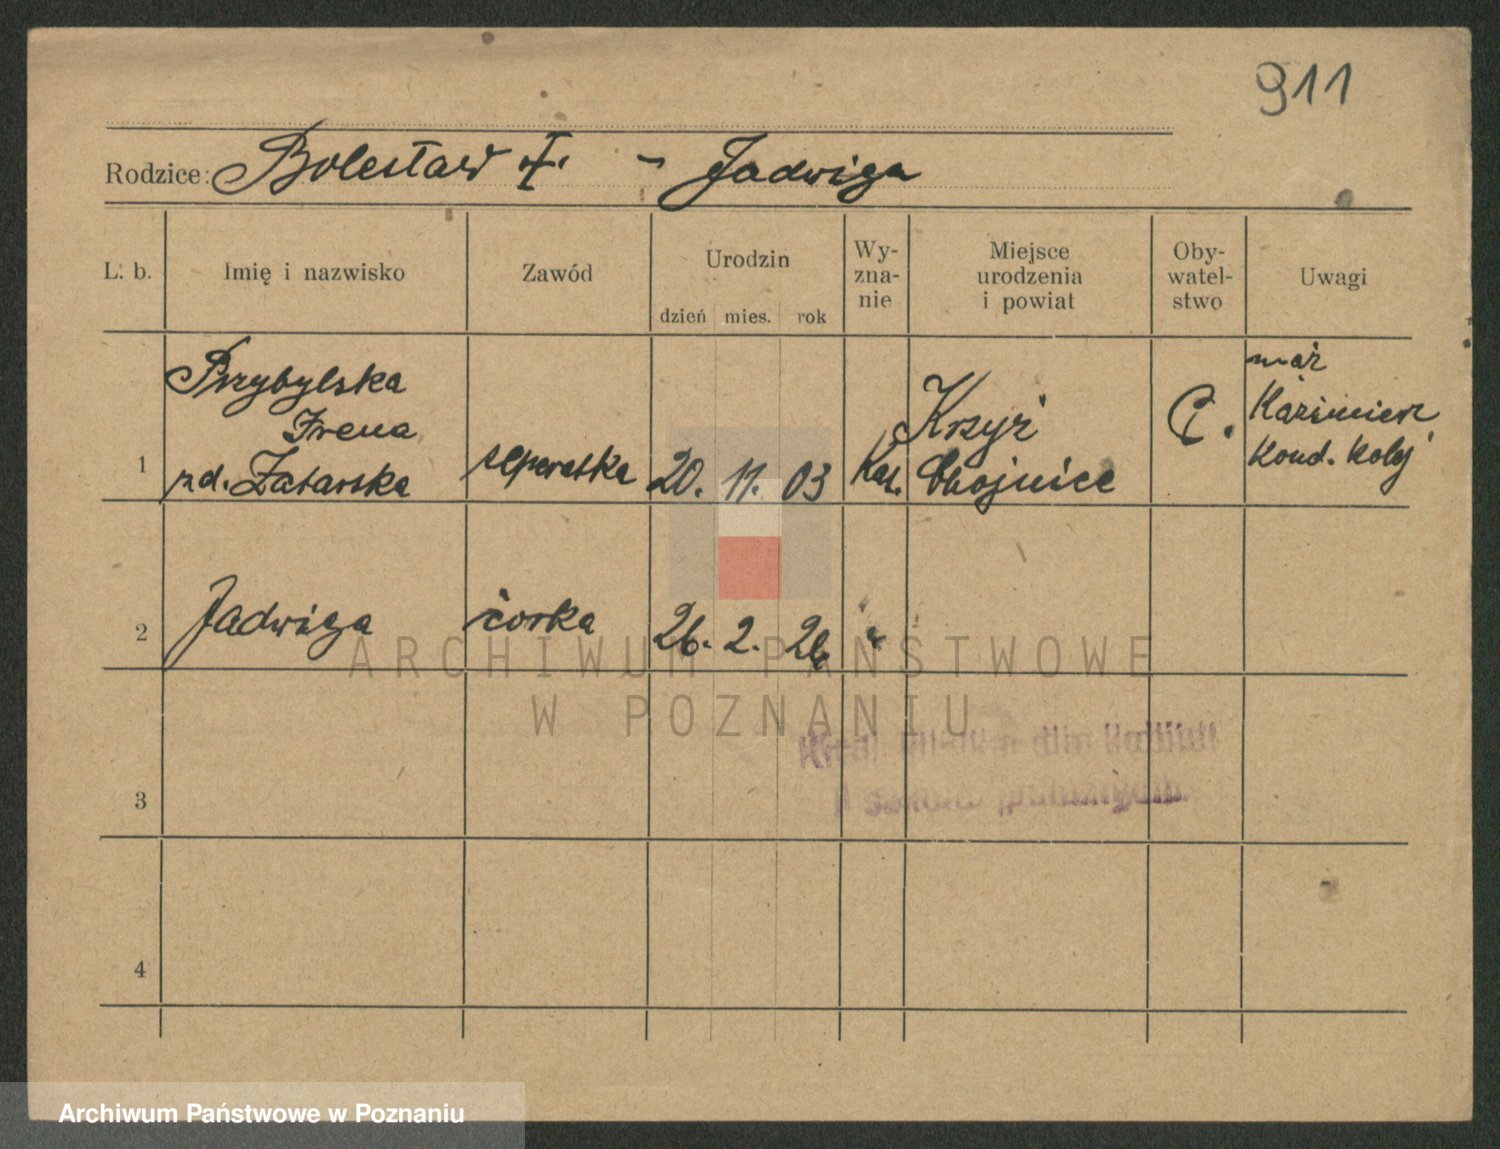 911
Rodzice: Bolesław Z. - Jadwiga
L. b.
Imię i nazwisko
Zawód
Urodzin
dzień mies. rok
Wy-
zna-
nie
Miejsce
urodzenia
i powiat
Oby-
watel-
stwo
Uwagi
1
Przybylska
Irena
zd. Zatarska
seperatka
20. 11. 03
Kat.
Krzyż
Chojnice
mąż
Kazimierz
Kond. Kolej
2
Jadwiga
córka
26. 2. 26
"
3
dla
4
ARCHIWUM PAŃSTWOWE
W POZNANIU
Archiwum Państwowe w Poznaniu